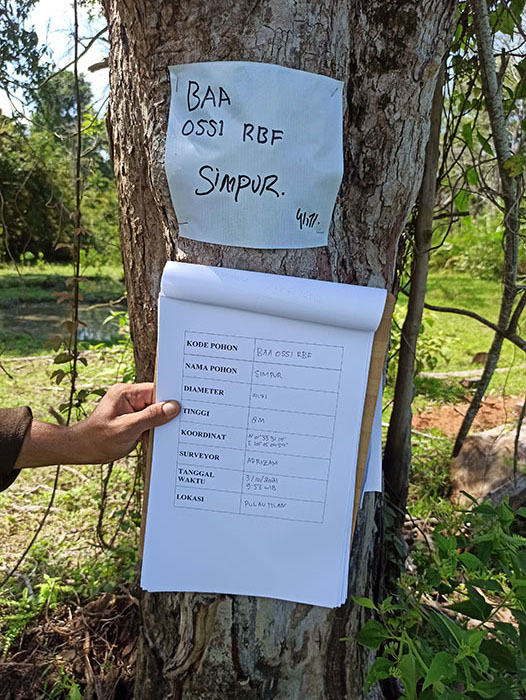 BAA
0551 RBF
SIMPUR.
KODE POHON BAA 0551 RBF
NAMA POHON SIMPUR
DIAMETER
TINGGI 8M
KOORDINAT
SURVEYOR AFRIZAM
TANGGAL 3/10/2021
WAKTU 9:53 WIB
LOKASI PULAU TILAN